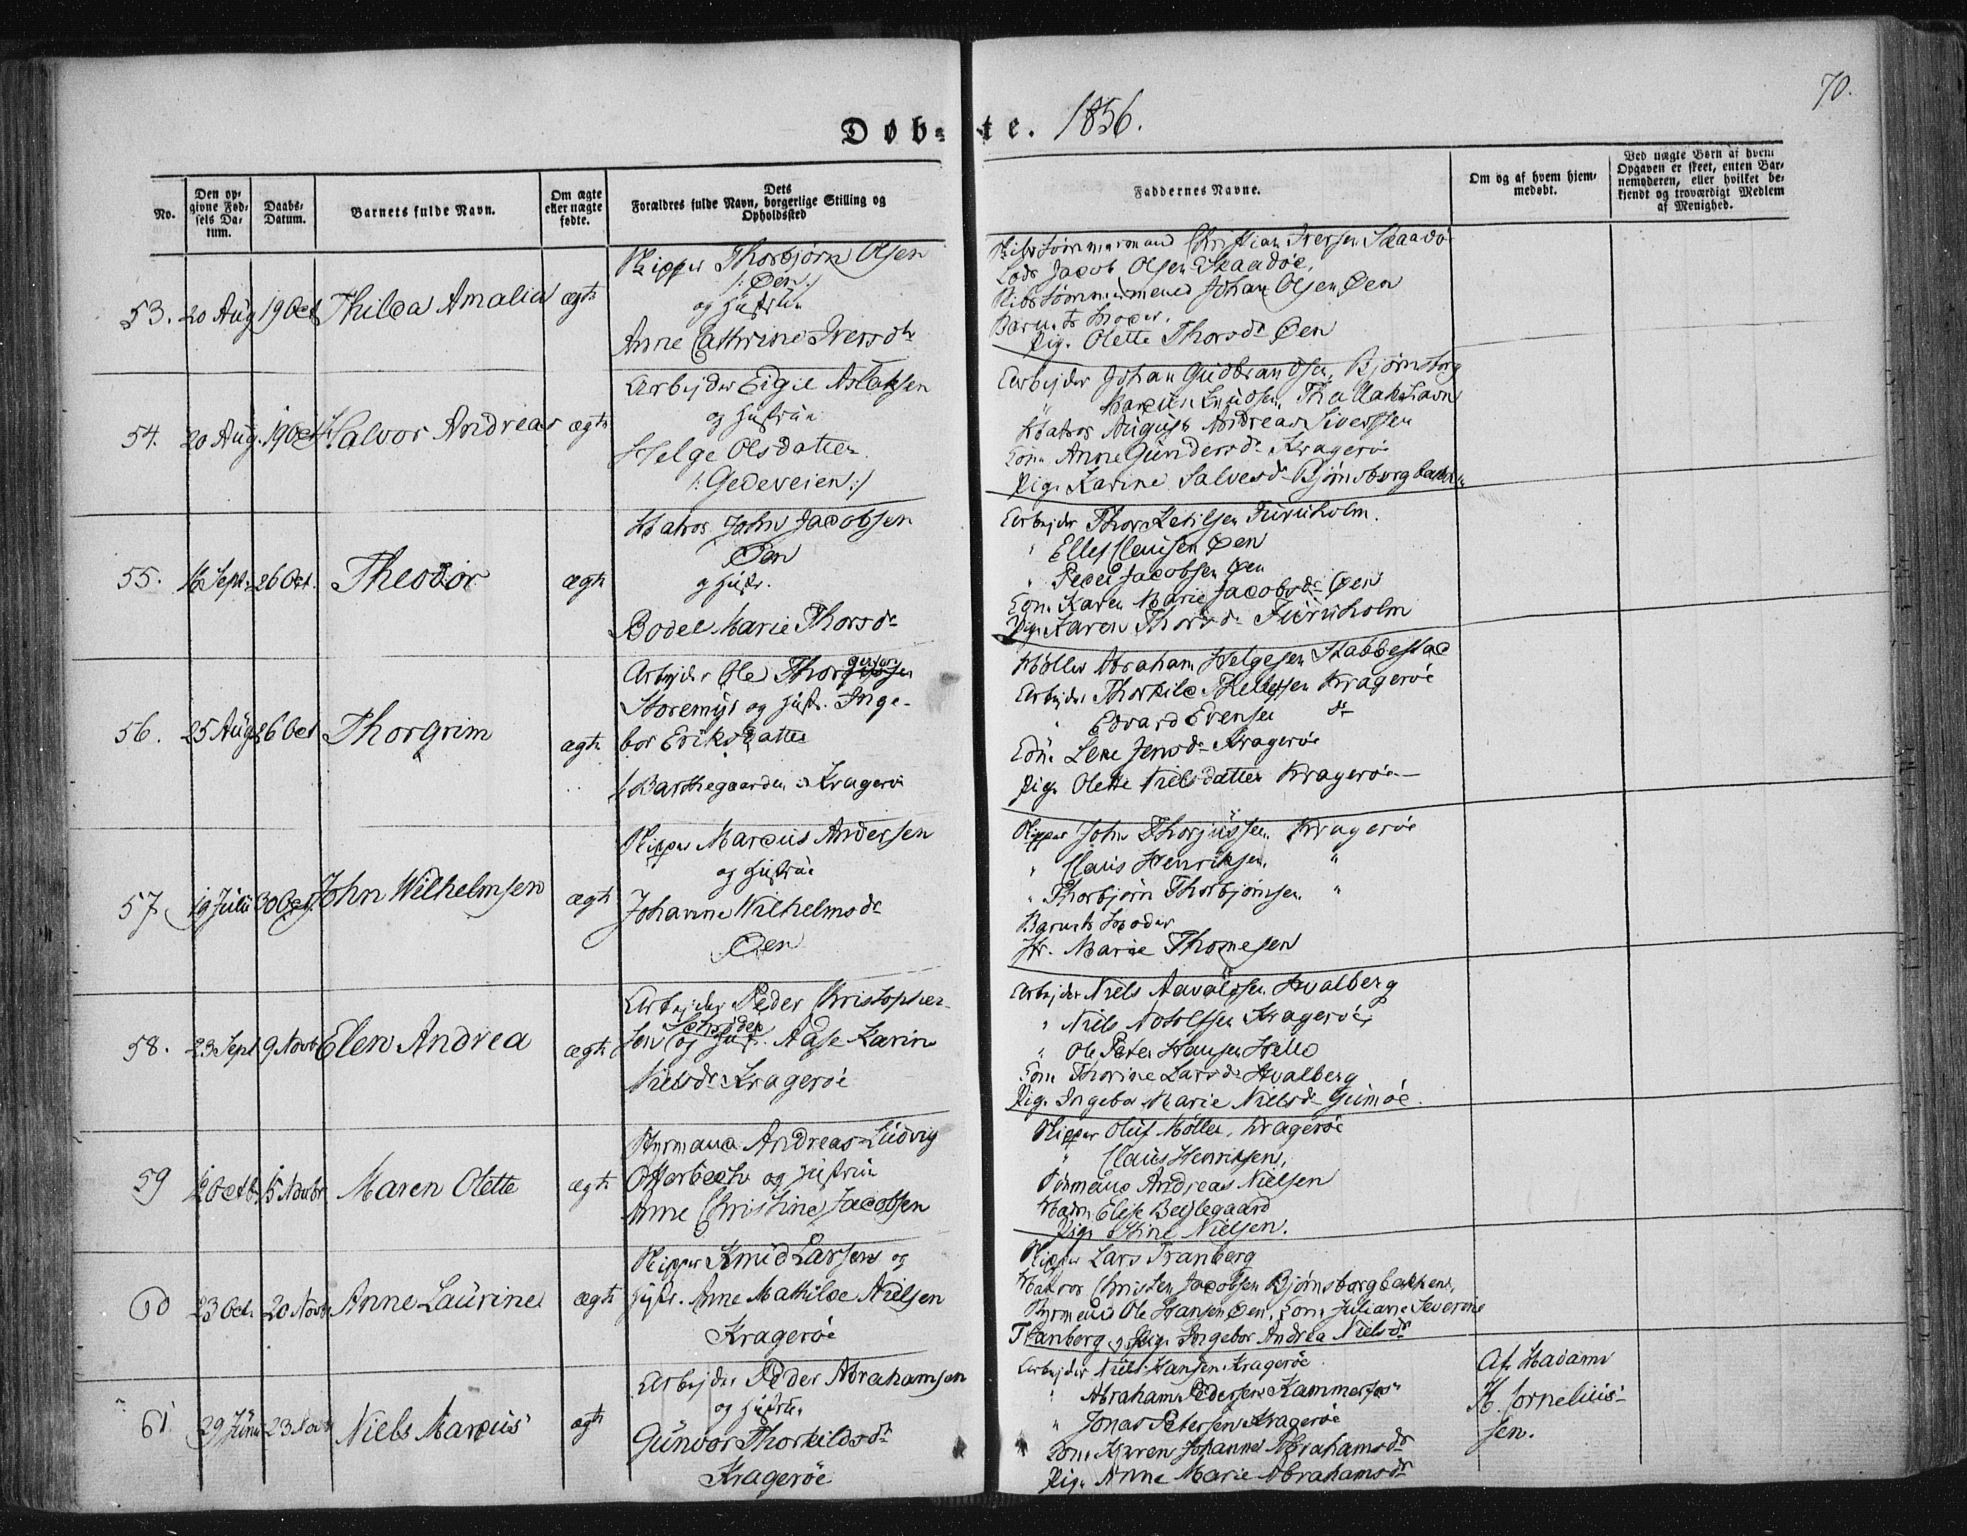 70.
Døb-te. 1856.
No.
Den op-
givne Fød-
sels Da-
tum.
Daabs-
Datum.
Barnets fulde Navn.
Om ægte
eller uægte
fødte.
Dets
Forældres fulde Navn, borgerlige Stilling og
Opholdssted
Faddernes Navne.
Om og af hvem hjem-
medøbt.
Ved uægte Børn af hvem
Opgaven er skeet, enten Bar-
nemoderen, eller hvilket be-
kjendt og troværdigt Medlem
af Menighed.
53. 20 Aug 19 Oct Thilda Amalia ægte
Skipper Thorbjørn Olsen
/: Øen :/
og Hustru
Anne Cathrine Iversdr
Skibstømmermand Christian Iversen Skaadø
Lods Jacob Olsen Skaadøe,
Skibstømmermand Johan Olsen Øen
Barnets Moder.
Pige Olette Thorsdr Øen
54. 20 Aug. 19 Oct Halvor Andreas ægte
Arbejder Eigil Aslaksen
og Hustrue
Helge Olsdatter
/: Gedeveien :/
Arbejder Johan Gudbrandsen, Bjørnsborg
" Knudsen,
Matros August Andreas Sivertsen
Kone Anne Gundersdr Kragerø
Pige Karine Salvesdr Bjørnsborgbakken
55. 16 Sept. 26 Oct. Theodor ægte
Matros John Jacobsen
Øen
og Hustr.
Bodel Marie Thorsdr
Arbejder Thor Ketilsen Furuholm.
" Ellef Clausen Øen
" Peder Jacobsen Øen
Kone Karen Marie Jacobsdr Øen
Pige Karen Thorsdr Furuholm
56. 25 Aug 26 Oct Thorgrim ægte
Arbejder Ole Thor
gersen
Storemyr og Hustr. Inge-
bor Eriksdatter
/: Barthegaarden i Kragerø
Møller Abraham Helgesen Stabbestad
Arbejder Thorkild Kragerøe
" Edvard Evensen do
Kone Lene Jensdr Kragerøe
Pige Olette Nielsdatter Kragerøe
57. 19 Juli 30 Oct. John Wilhelmsen ægte
Skipper Marcus Andersen
og Hustrue
Johanne Wilhelmsdr
Øen
Skipper John Thorjussen Kragerøe
" Claus Henriksen. "
" Thorbjørn Thorbjørnsen "
Barnets Moder
Fr. Marie Thomesen
58. 23 Sept 9 Novb Elen Andrea ægte
Arbejder Peder Christopher-
sen og Hustr. Aase Karine
Nielsdr Kragerøe
Arbejder Niels Aavaldsen Hvalberg
" Niels Adolfsen Kragerøe,
" Ole Peter Hansen Helle
Kone Thorine Larsdr Hvalberg
Pige Ingebor Marie Nielsdr Gumøe.
59 12 Octb 15 Novbr Maren Olette ægte
Styrmand Andreas Ludvig
Otterbech og Hustrue
Anne Christine Jacobsen
Skipper Oluf Møller, Kragerøe
" Claus Henriksen,
Styrmand Andreas Nielsen
Madm Elise Beslegaard
Pige Stine Nielsen.
60 23 Oct. 20 Novb Anne Laurine ægte
Skipper Knud Larsen og
Hustr. Anne Mathilde Nielsen
Kragerøe
Skipper Lars Tranberg
Matros Christen Jacobsen Bjørnsborgbakken,
Styrmand Ole Hansen Øen, Kone Juliane Severine
Tranberg og Pige Ingebor Andrea Nielsdr
61. 29 Juni 23 Novb Niels Marcus ægte
Arbejder Peder Abrahamsen
og Hustru
Gunvor Thorkildsdr
Kragerøe
Arbejder Niels Hansen Kragerøe.
" Abraham Pedersen Kammerfos
" Jonas Petersen Kragerøe
Kone Karen Johanne Abrahamsdr
Pige Anne Marie Abrahamsdr
Af Madame
K. Cornelius-
sen.